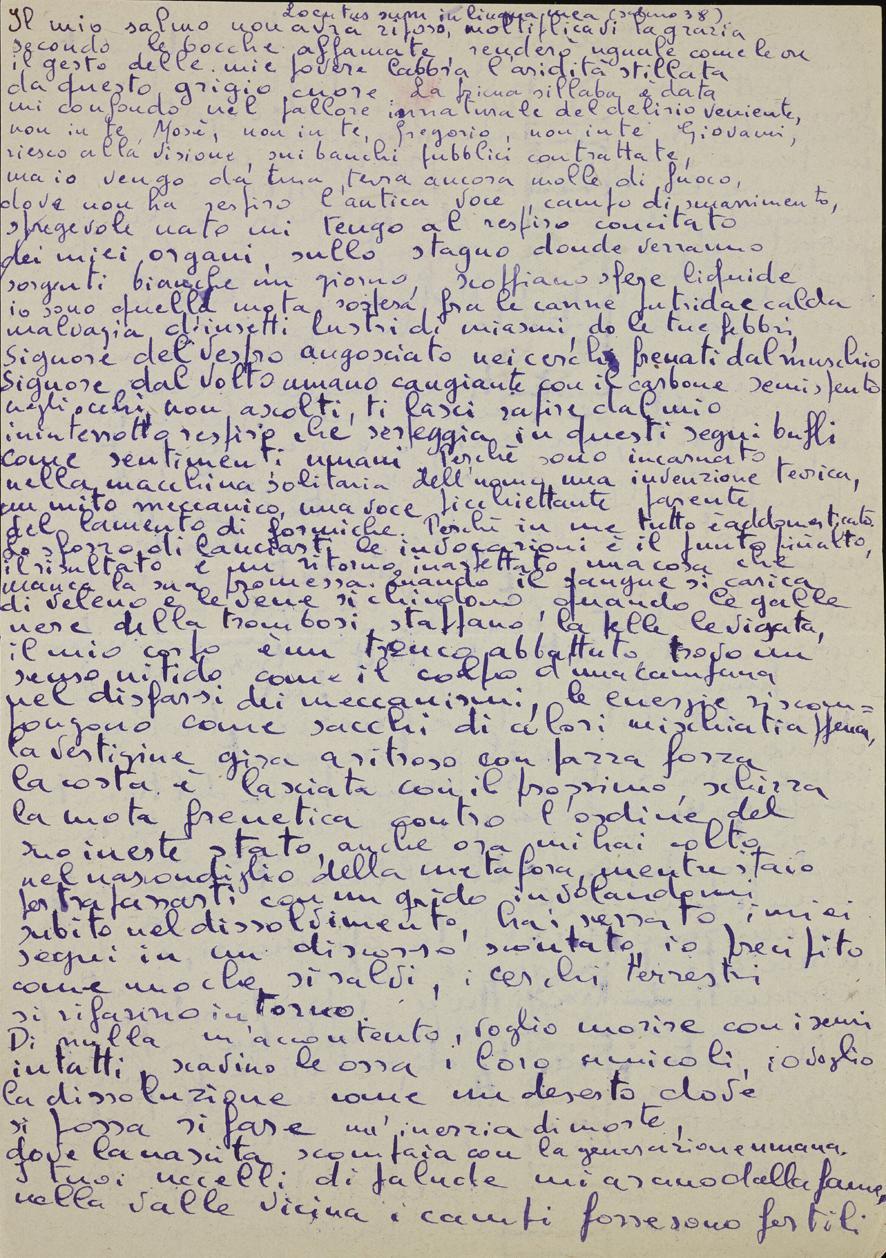 Locutus sum in lingua mea (salmo 38)
Il mio salmo non avrà riposo, moltiplicavi la grazia
secondo le bocche affamate renderò uguale come le ore
il gesto delle mie povere labbra l'aridità stillata
da questo grigio cuore. La prima sillaba è data
mi confondo nel pallore innaturale del delirio veniente,
non in te, Mosè, non in te, Gregorio, non in te Giovanni,
riesco alla visione, sui banchi pubblici contrattate,
ma io vengo da una terra ancora molle di fuoco,
dove non ha respiro l'antica voce, campo di smarrimento,
spregevole nato mi tengo al respiro concitato
dei miei organi, sullo stagno donde verranno
sorgenti bianche un giorno, scoppiano sfere liquide
io sono quella mota sospesa fra le canne putrida e calda
malvagia d'insetti lustri di miasmi, do le tue febbri,
Signore del Vespro angosciato nei cerchi frenati dal muschio
Signore dal volto umano cangiante con il carbone semispento
negli occhi, non ascolti, ti lasci rapire dal mio
ininterrotto respiro che serpeggia in questi segni buffi
come sentimenti umani. Perchè sono incarnato
nella macchina solitaria dell'uomo, una invenzione teorica,
un mito meccanico, una voce picchiettante parente
del lamento di formiche. Perchè in me tutto è addomesticato.
Lo sforzo di lanciarti le invocazioni è il punto più alto,
il risultato è un ritorno inaspettato, una cosa che
manca la sua promessa. Quando il sangue si carica
di veleno e le vene si chiudono, quando le galle
nere della trombosi staffano la pelle levigata,
il mio corpo è un tronco abbattuto, trovo un
senso nitido come il colpo d'una campana
nel disfarsi dei meccanismi, le energie riscom=
pongono come sacchi di colori mischiati a pena,
la vertigine gira a ritroso con pazza forza
la costa è lasciata con il prossimo, schizza
la mota frenetica contro l'ordine del
suo inerte stato, anche ora mi hai colto
nel nascondiglio della metafora, mentre stavo
per trapassarti con un grido involandomi
subito nel dissolvimento, hai serrato i miei
segni in un discorso scontato, io precipito
come uno che si salvi, i cerchi terrestri
si rifanno intorno.
Di nulla m'accontento, voglio morire con i semi
intatti, scavino le ossa i loro cunicoli, io voglio
la dissoluzione come un deserto dove
si possa si fare un'inerzia di morte,
dove la nascita scompaia con la generazione umana.
I tuoi uccelli di palude miagolano dalla fame,
nella valle vicina i campi forse sono fertili